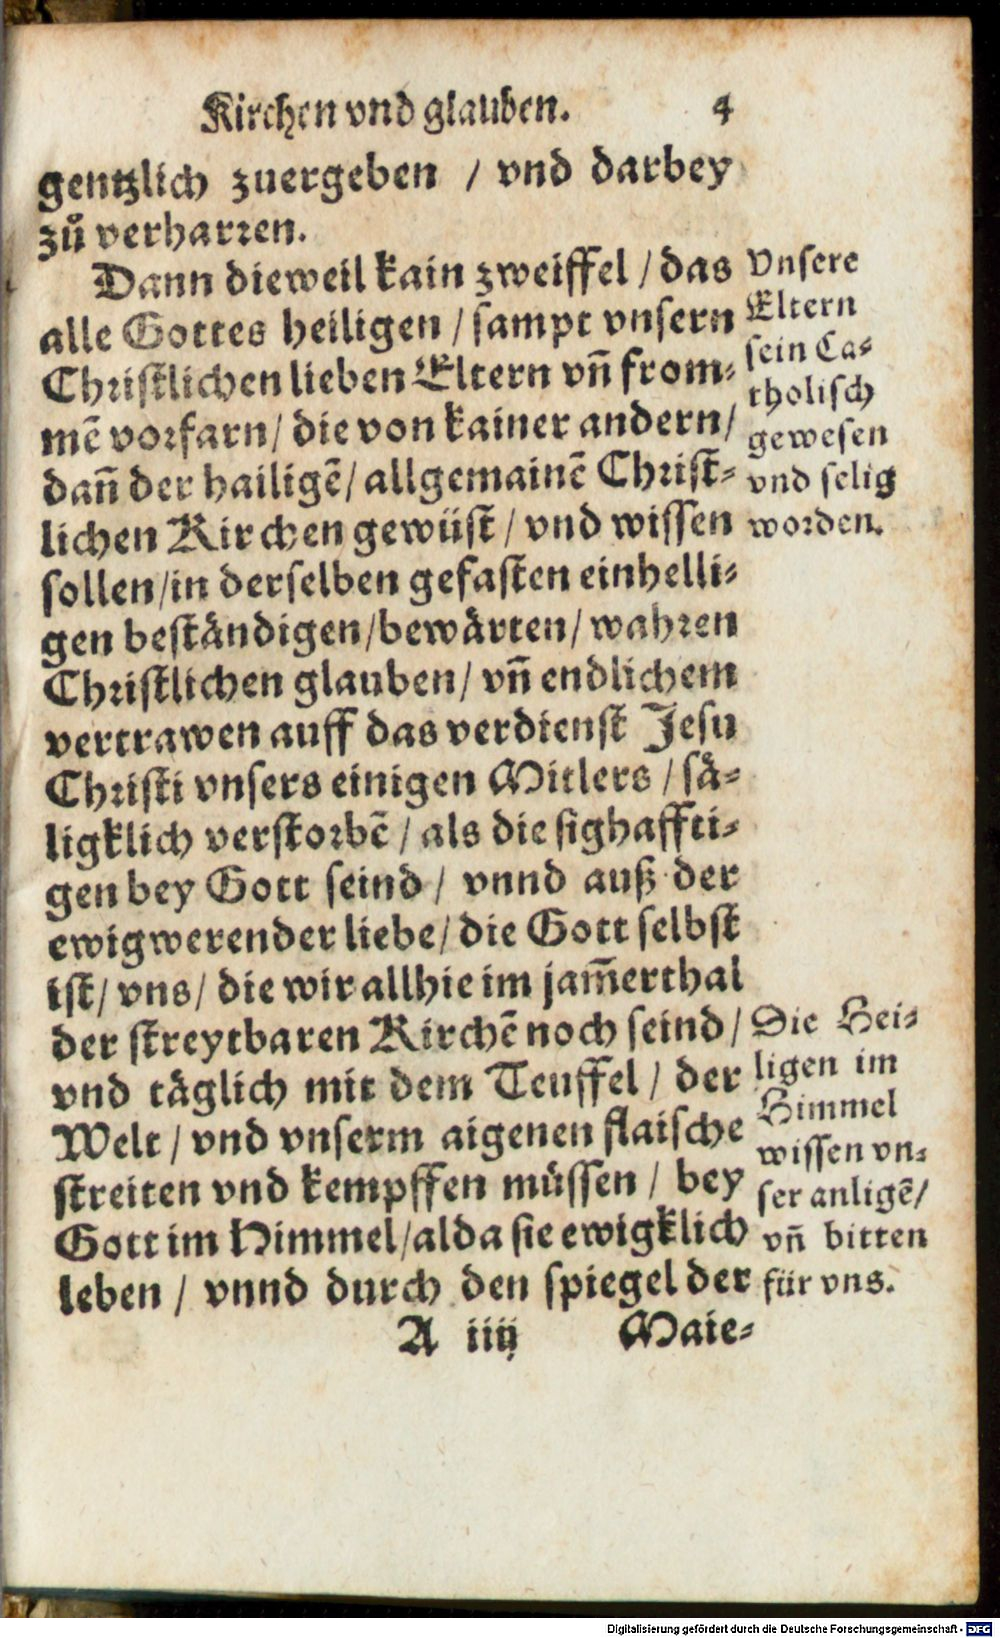 Kirchen vnd glauben. 4
gentzlich zuergeben / vnd darbey
zuͦ verharren.
Dann dieweil kain zweiffel / das
alle Gottes heiligen / sampt vnsern
Christlichen lieben Eltern vñ from-
mẽ vorfarn / die von kainer andern /
dañ der hailigẽ / allgemainẽ Christ-
lichen Kirchen gewüst / vnd wissen
sollen / in derselben gefasten einhelli-
gen beständigen / bewärten / wahren
Christlichen glauben / vñ endlichem
vertrawen auff das verdienst Jesu
Christi vnsers einigen Mitlers / sä-
ligklich verstorbẽ / als die sighaffti-
gen bey Gott seind / vnnd auß der
ewigwerender liebe / die Gott selbst
ist / vns / die wir allhie im jam̃erthal
der streytbaren Kirchẽ noch seind /
vnd täglich mit dem Teuffel / der
Welt / vnd vnserm aigenen flaische
streiten vnd kempffen müssen / bey
Gott im Himmel / alda sie ewigklich
leben / vnnd durch den spiegel der
A iiij Maie-
Vnsere
Eltern
sein Ca-
tholisch
gewesen
vnd selig
worden.
Die Hei-
ligen im
Himmel
wissen vn-
ser anligẽ /
vñ bitten
für vns.
Digitalisierung gefördert durch die Deutsche Forschungsgemeinschaft - DFG